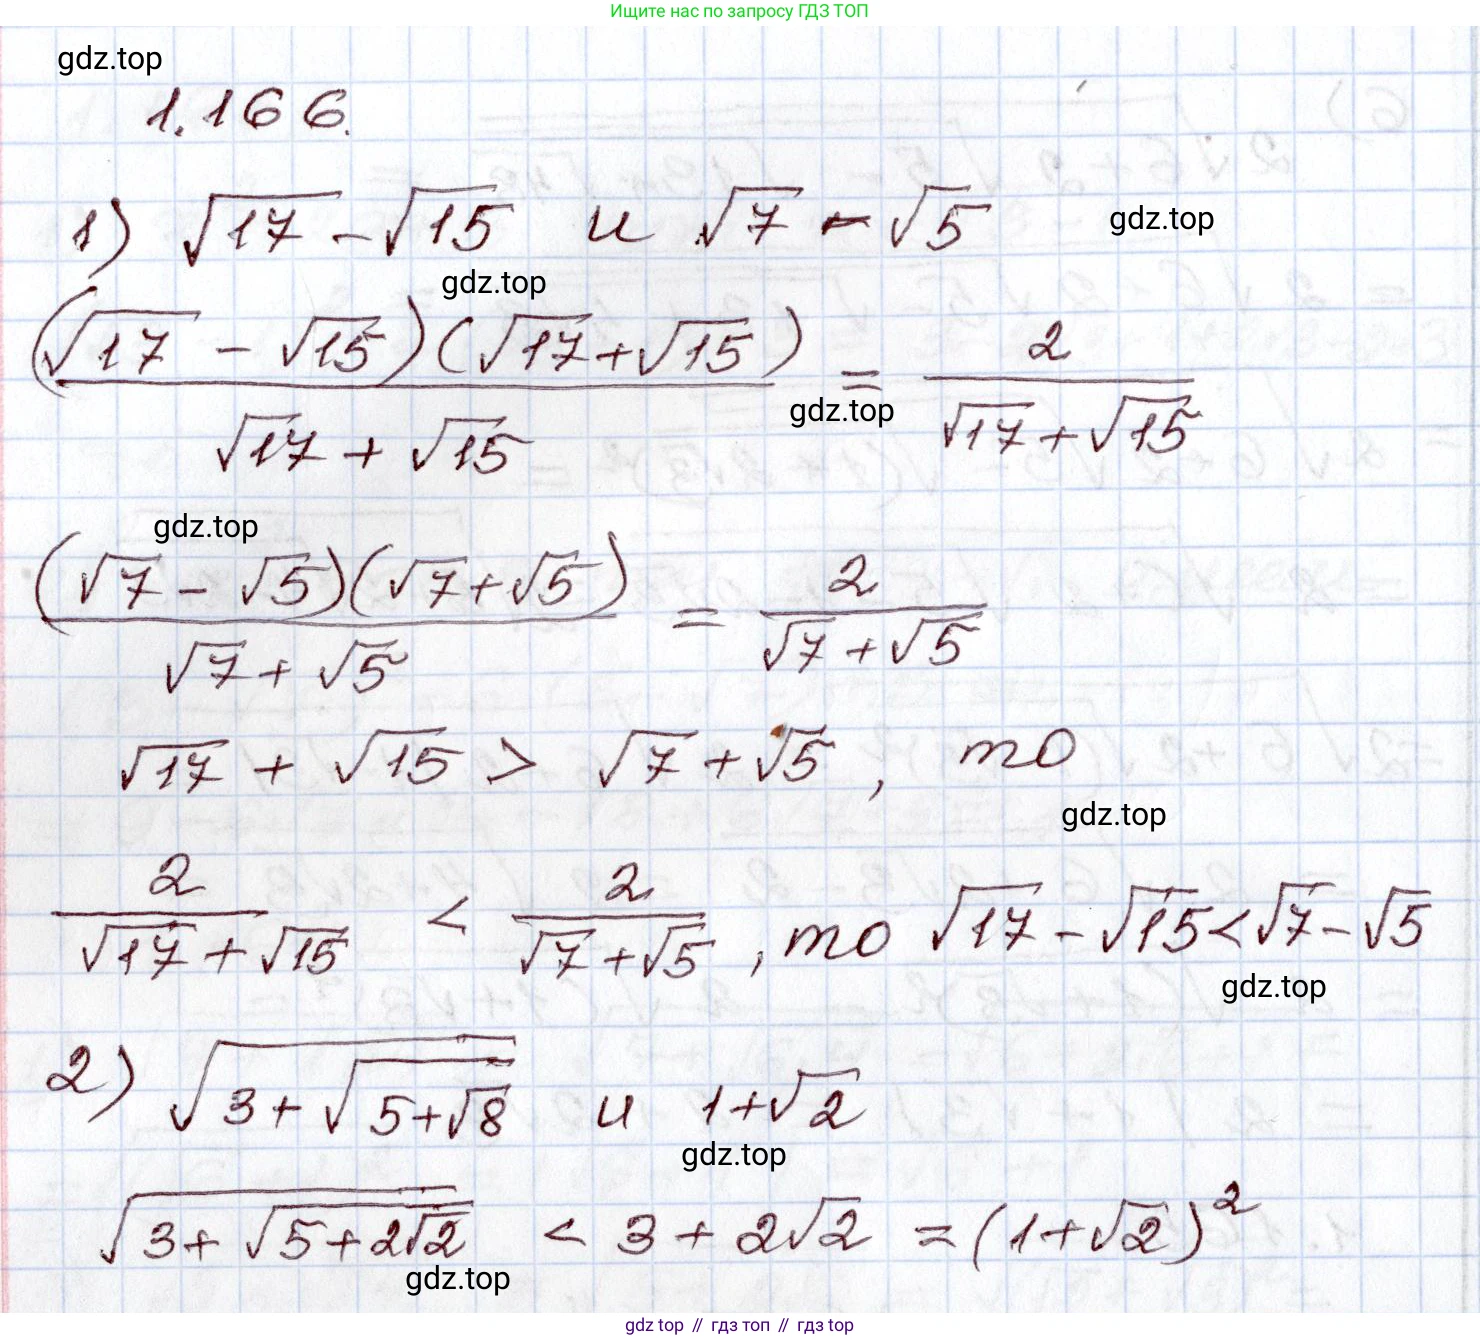 Ищите нас по запросу ГДЗ ТОП
gdz.top
1.166.
1) √17 - √15 и √7 - √5 gdz.top
gdz.top
(√17 - √15)(√17 + √15) / (√17 + √15) = 2 / (√17 + √15)
gdz.top
gdz.top
(√7 - √5)(√7 + √5) / (√7 + √5) = 2 / (√7 + √5)
√17 + √15 > √7 + √5, то
gdz.top
2 / (√17 + √15) < 2 / (√7 + √5), то √17 - √15 < √7 - √5
gdz.top
2) √(3 + √(5 + √8)) и 1 + √2
gdz.top
√(3 + √(5 + 2√2)) < 3 + 2√2 = (1 + √2)²
gdz.top
gdz top // гдз топ // гдз top